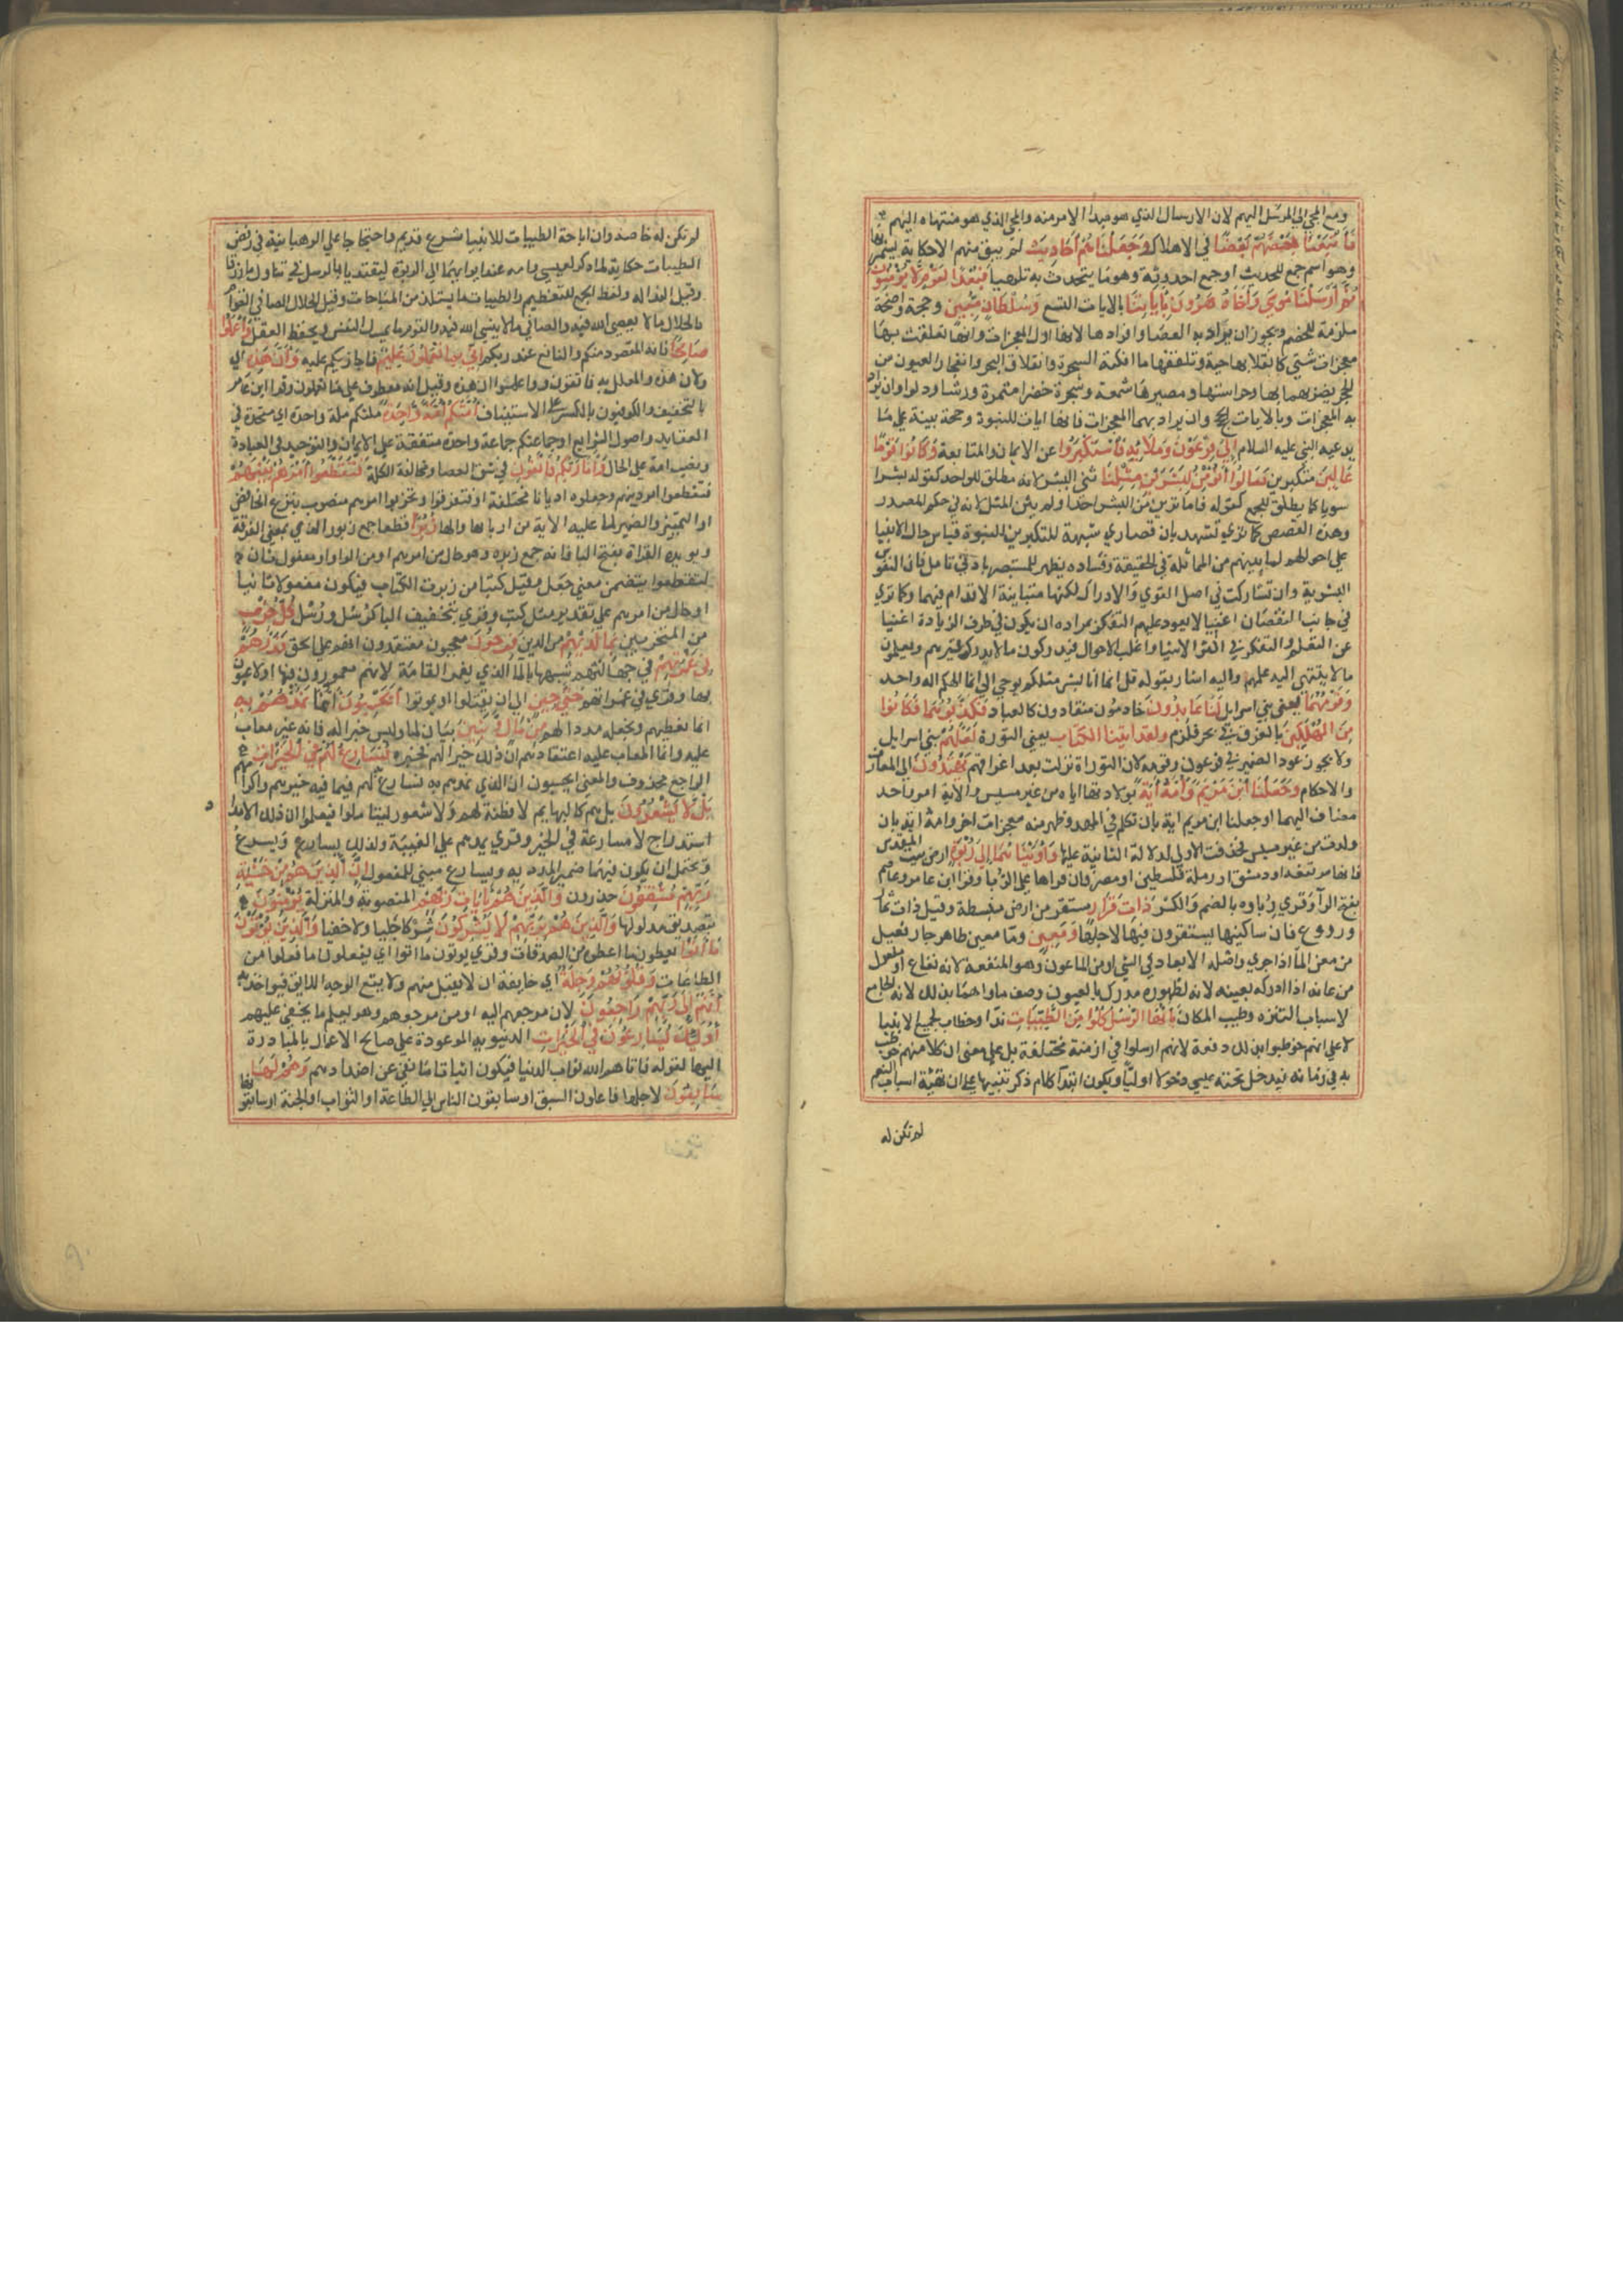 ومع المجي الي المرسل اليهم لان الارسال الذي هو مبدا الامر منه والمجي الذي هو منتهاه اليهم
فَأَتْبَعْنَا بَعْضَهُمْ بَعْضًا في الاهلاك وَجَعَلْنَاهُمْ أَحَادِيثَ لم يبق منهم الا حكايات يسمر بها
وهو اسم جمع للحديث او جمع احدوثة وهو ما يتحدث به تلهيا فَبُعْدًا لِقَوْمٍ لَا يُؤْمِنُونَ
ثُمَّ أَرْسَلْنَا مُوسَي وَأَخَاهُ هَرُونَ بِأَيَاتِنَا بالايات التسع وَسُلْطَانٍ مُبِينٍ وحجة واضحة
ملزمة للخصم ويجوز ان يراد به العصا وافرادها لانها اول المعجزات وامها تعلقت بها
معجزات شتي كانقلابها حية وتلقفها ما افكته السحرة وانفلاق البحر وانفجار العيون من
الحجر بضربهما بها وحراستها ومصيرها شمعة وشجرة خضرا مثمرة ورشا ودلوا وان يراد
به المعجزات وبالايات الحجج وان يراد بهما المعجزات فانها ايات للنبوة وحجة بينة علي ما
يدعيه النبي عليه السلام إِلَي فِرْعَوْنَ وَمَلَائِهِ فَاسْتَكْبَرُوا عن الايمان والمتابعة وَكَانُوا قَوْمًا
عَالِينَ متكبرين فَقَالُوا أَنُؤْمِنُ لِبَشَرَيْنِ مِثْلِنَا ثني البشر لانه مطلق للواحد كقوله بشرا
سويا كما يطلق للجمع كقوله فاما ترين من البشر احدا ولم يثن المثل لانه في حكم المصدر
وهذه القصص كما تري تشهد بان قصاري شبهة للنكرين للنبوة قياس حال الانبيا
علي احوالهم لما بينهم من المماثلة في الحقيقة وفساده يظهر للمستبصر بادني تامل فان النفوس
البشرية وان تشاركت في اصل القوي والادراك لكنها متباينة الاقدام فيهما وكما تري
في جانب النقصان اغبيا لا يعود عليهم التفكر بمراده ان يكون في طرف الزيادة اغنيا
عن التعلم والتفكر في اكثر الاشيا واغلب الاحوال فيدركون ما لا يدرك غيرهم ويعلمون
ما لا ينتهي اليه علمهم واليه اشار بقوله قل انما انا بشر مثلكم يوحي الي انما الهكم اله واحد
وَقَوْمُهُمَا يعني بني اسرايل لَنَا عَابِدُونَ خادمون منقادون كالعباد فَكَذَّبُوهُمَا فَكَانُوا
مِنَ الْمُهْلَكِينَ بالغرق في بحر قلزم ولقد اتينا الكتاب يعني التورة لَعَلَّهُمْ بني اسرايل
ولا يجوز عود الضمير في فرعون وقومه لان التوراة نزلت بعد اغراقهم يَهْتَدُونَ الي المعارف
والاحكام وَجَعَلْنَا ابْنَ مَرْيَمَ وَأُمَّهُ أيَةً بولادتها اياه من غير مسيس والاية امر واحد
مضاف اليهما او جعلنا ابن مريم اية بان تكلم في المهد وظهر منه معجزات اخر وامه اية بان
ولدت من غير مسيس فحذفت الاولي لدلالة الثانية عليها وَأَوَيْنَاهُمَا إِلَي رَبْوَةٍ ارض بيت المقدس
فانها مرتفعة او دمشق او رملة فلسطين او مصر فان قراها علي الربا وقرا ابن عامر وعاصم
بفتح الرا وقري رباوه بالضم والكسر ذَاتِ قَرَارٍ مستقر من ارض منبسطة وقيل ذات ثمار
وزروع فان ساكنيها يستقرون فيها لاجلها وَمَعِينٍ وما معين ظاهر جار فعيل
من معن الما اذا جري واصله الابعاد في الشي او من الماعون وهو المنفعة لانه نفاع او مفعول
من عانه اذا ادركه بعينه لانه لظهوره مدرك بالعيون وصف ماوها بذلك لانه الجامع
لاسباب التنزه وطيب المكان يأَيُّهَا الرُّسُلُ كُلُوا مِنَ الطَّيِّبَاتِ ندا وخطاب لجميع الانبيا
لا علي انهم خوطبوا بذلك دفعة لانهم ارسلوا في ازمنة مختلفة بل علي معني ان كلا منهم خوطب
به في زمانه فيدخل تحته عيسي دخولا اوليا ويكون ابتدا كلام ذكر تنبيها علي ان تهيئة اسباب التنعم
لم تكن له
لم تكن له خاصة وان اباحة الطيبات للانبيا شرع قديم واحتجاجا علي الرهبانية في رفض
الطيبات او حكاية لما ذكر لعيسي وامه عند ايوايهما الي الربوة ليقتديا بالرسل في تناول ما رزقا
وقيل الندا له ولفظ الجمع للتعظيم والطيبات ما يستلذ من المباحات وقيل الحلال الصافي القوام
فالحلال ما لا يعصي الله فيه والصافي ما لا ينسي الله فيه والقوام ما يمسك النفس ويحفظ العقل وَاعْمَلُوا
صَالِحًا فانه المقصود منكم والنافع عند ربكم إِنِّي بِمَا تَعْمَلُونَ عَلِيمٌ فاجازيكم عليه وَأَنَّ هَذِهِ اي
ولان هذه والمعلل به فاتقون او واعلموا ان هذه وقيل انه معطوف علي ما تعملون وقرا ابن عامر
بالتخفيف والكوفيون بالكسر علي الاستيناف أُمَّتُكُمْ أُمَّةً وَاحِدَةً ملتكم ملة واحدة اي متحدة في
العقايد واصول الشرايع او جماعتكم جماعة واحدة متفقة علي الايمان والتوحيد في العبادة
ونصب امة علي الحال وَأَنَا رَبُّكُمْ فَاتَّقُونِ في شق العصا ومخالفة الكلمة فَتَقَطَّعُوا أَمْرَهُمْ بَيْنَهُمْ
فتقطعوا امر دينهم وجعلوه اديانا مختلفة او فتفرقوا وتحزبوا امرهم منصوب بنزع الخافض
او التمييز والضمير لما دل عليه الاية من اربابها او لها زُبُرًا قطعا جمع زبور الذي بمعني الفرقة
ويويده القراة بفتح البا فانه جمع زبره وهو حال من امرهم او من الواو او مفعول ثان
لتقطعوا يتضمن معني جعل وقيل كتبا من زبرت الكتاب فيكون مفعولا ثانيا
او حال من امرهم علي تقدير مثل كتب وقري بتخفيف البا كرسل ورسل كُلُّ حِزْبٍ
من المتحزبين بِمَا لَدَيْهِمْ من الدين فَرِحُونَ معجبون معتقدون انهم علي الحق فَذَرْهُمْ
فِي غَمْرَتِهِمْ في جهالتهم شبهها بالما الذي يغمر القامة لانهم مغمورون فيها او لاعبون
بها وقري في غمراتهم حَتَّي حِينٍ الي ان يقتلوا او يموتوا أَيَحْسَبُونَ أَنَّمَا نُمِدُّهُمْ بِهِ
انما نعطيهم ونجعله مددا لهم مِنْ مَالٍ وَبَنِينَ بيان لما وليس خبرا له فانه غير معاب
عليه وانما المعاب عليه اعتقادهم ان ذلك خير لهم فخبره نُسَارِعُ لَهُمْ فِي الْخَيْرَاتِ
والراجع محذوف والمعني ايحسبون ان الذي نمدهم به نسارع لهم فيما فيه خيرهم واكرامهم
بَلْ لَا يَشْعُرُونَ بل هم كالبهايم لا فطنة لهم ولا شعور ليتاملوا فيعلموا ان ذلك الامداد
استدراج لا مسارعة في الخير وقري يمدهم علي الغيبة وكذلك يسارع ويسرع
ويحتمل ان يكون فيهما ضمير الممد به ويسارع مبني للمفعول إِنَّ الَّذِينَ هُمْ مِنْ خَشْيَةِ
رَبِّهِمْ مُشْفِقُونَ حذرون وَالَّذِينَ هُمْ بِأيَاتِ رَبِّهِمْ المنصوبة والمنزلة يُؤْمِنُونَ
بتصديق مدلولها وَالَّذِينَ هُمْ بِرَبِّهِمْ لَا يُشْرِكُونَ شركا جليا ولا خفيا وَالَّذِينَ يُؤْتُونَ
مَا أتَوْا يعطون ما اعطوه من الصدقات وقري يوتون ما اتوا اي يفعلون ما فعلوا من
الطاعات وَقُلُوبُهُمْ وَجِلَةٌ اي خايفة ان لا يقبل منهم ولا يقع الوجه اللايق فيواخذ به
أَنَّهُمْ إِلَي رَبِّهِمْ رَاجِعُونَ لان مرجعهم اليه او من مرجعهم وهو يعلم ما يخفي عليهم
أُولَئِكَ يُسَارِعُونَ فِي الْخَيْرَاتِ الدنيوية الموعودة علي صالح الاعمال بالمبادرة
اليها لقوله فاتاهم الله ثواب الدنيا فيكون اثباتا لهم ما نفي عن اضدادهم وَهُمْ لَهَا
سَابِقُونَ لاجلها فاعلون السبق او سابقون الناس الي الطاعة او الثواب او الجنة او سابقونها